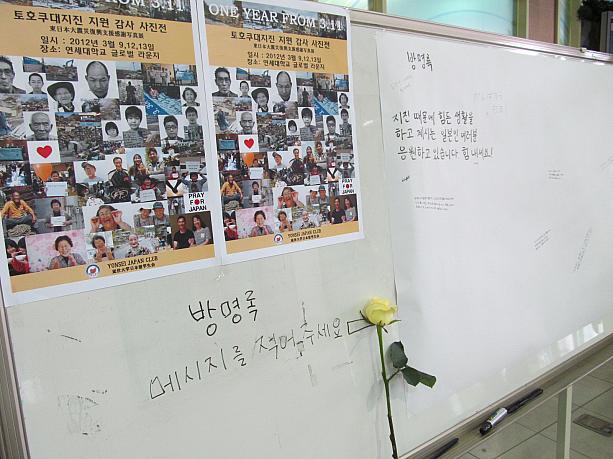 ONE YEAR FROM 3.11
토호쿠대지진 지원 감사 사진전
東日本大震災復興支援感謝写真展
일시 : 2012년 3월 9,12,13일
장소: 연세대학교 글로벌 라운지
PRAY
FOR
JAPAN
YONSEI JAPAN CLUB
延世大学日本留学生会
FROM 3.11
토호쿠대지진 지원 감사 사진전
東日本大震災復興支援感謝写真展
일시 : 2012년 3월 9,12,13일
장소: 연세대학교 글로벌 라운지
PRAY
FOR
JAPAN
YONSEI JAPAN CLUB
延世大学日本留学生会
방명록
메시지를 적어 주세요
방명록
지진 때문에 힘든 생활을
하고 계시는 일본인 여러분
응원하고 있습니다 힘 내세요!